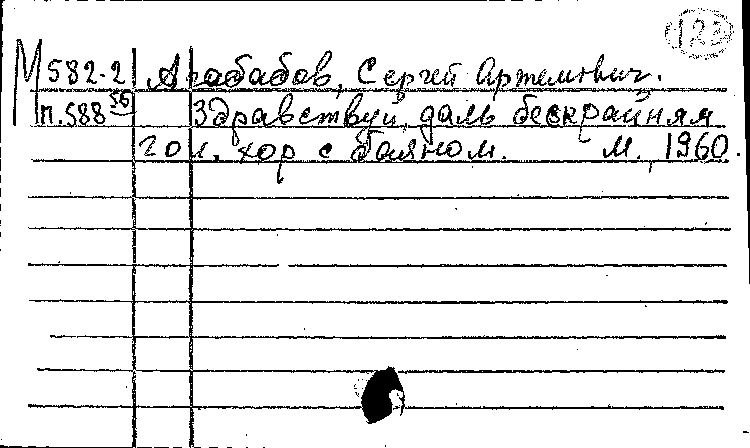 123
М 582-2 Агабабов, Сергей Артемьевич.
п.588 56 Здравствуй, даль бескрайняя
гол. хор с баяном. М., 1960.